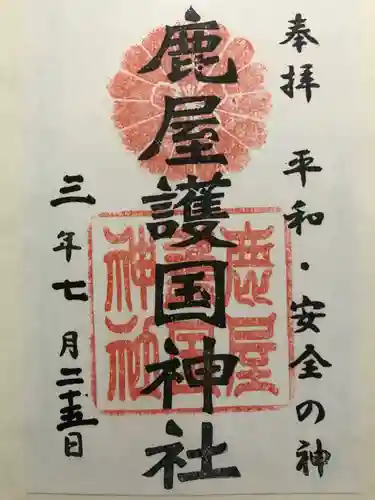 奉拝 平和・安全の神
鹿屋護国神社
鹿屋
護国
神社
三年七月二十五日